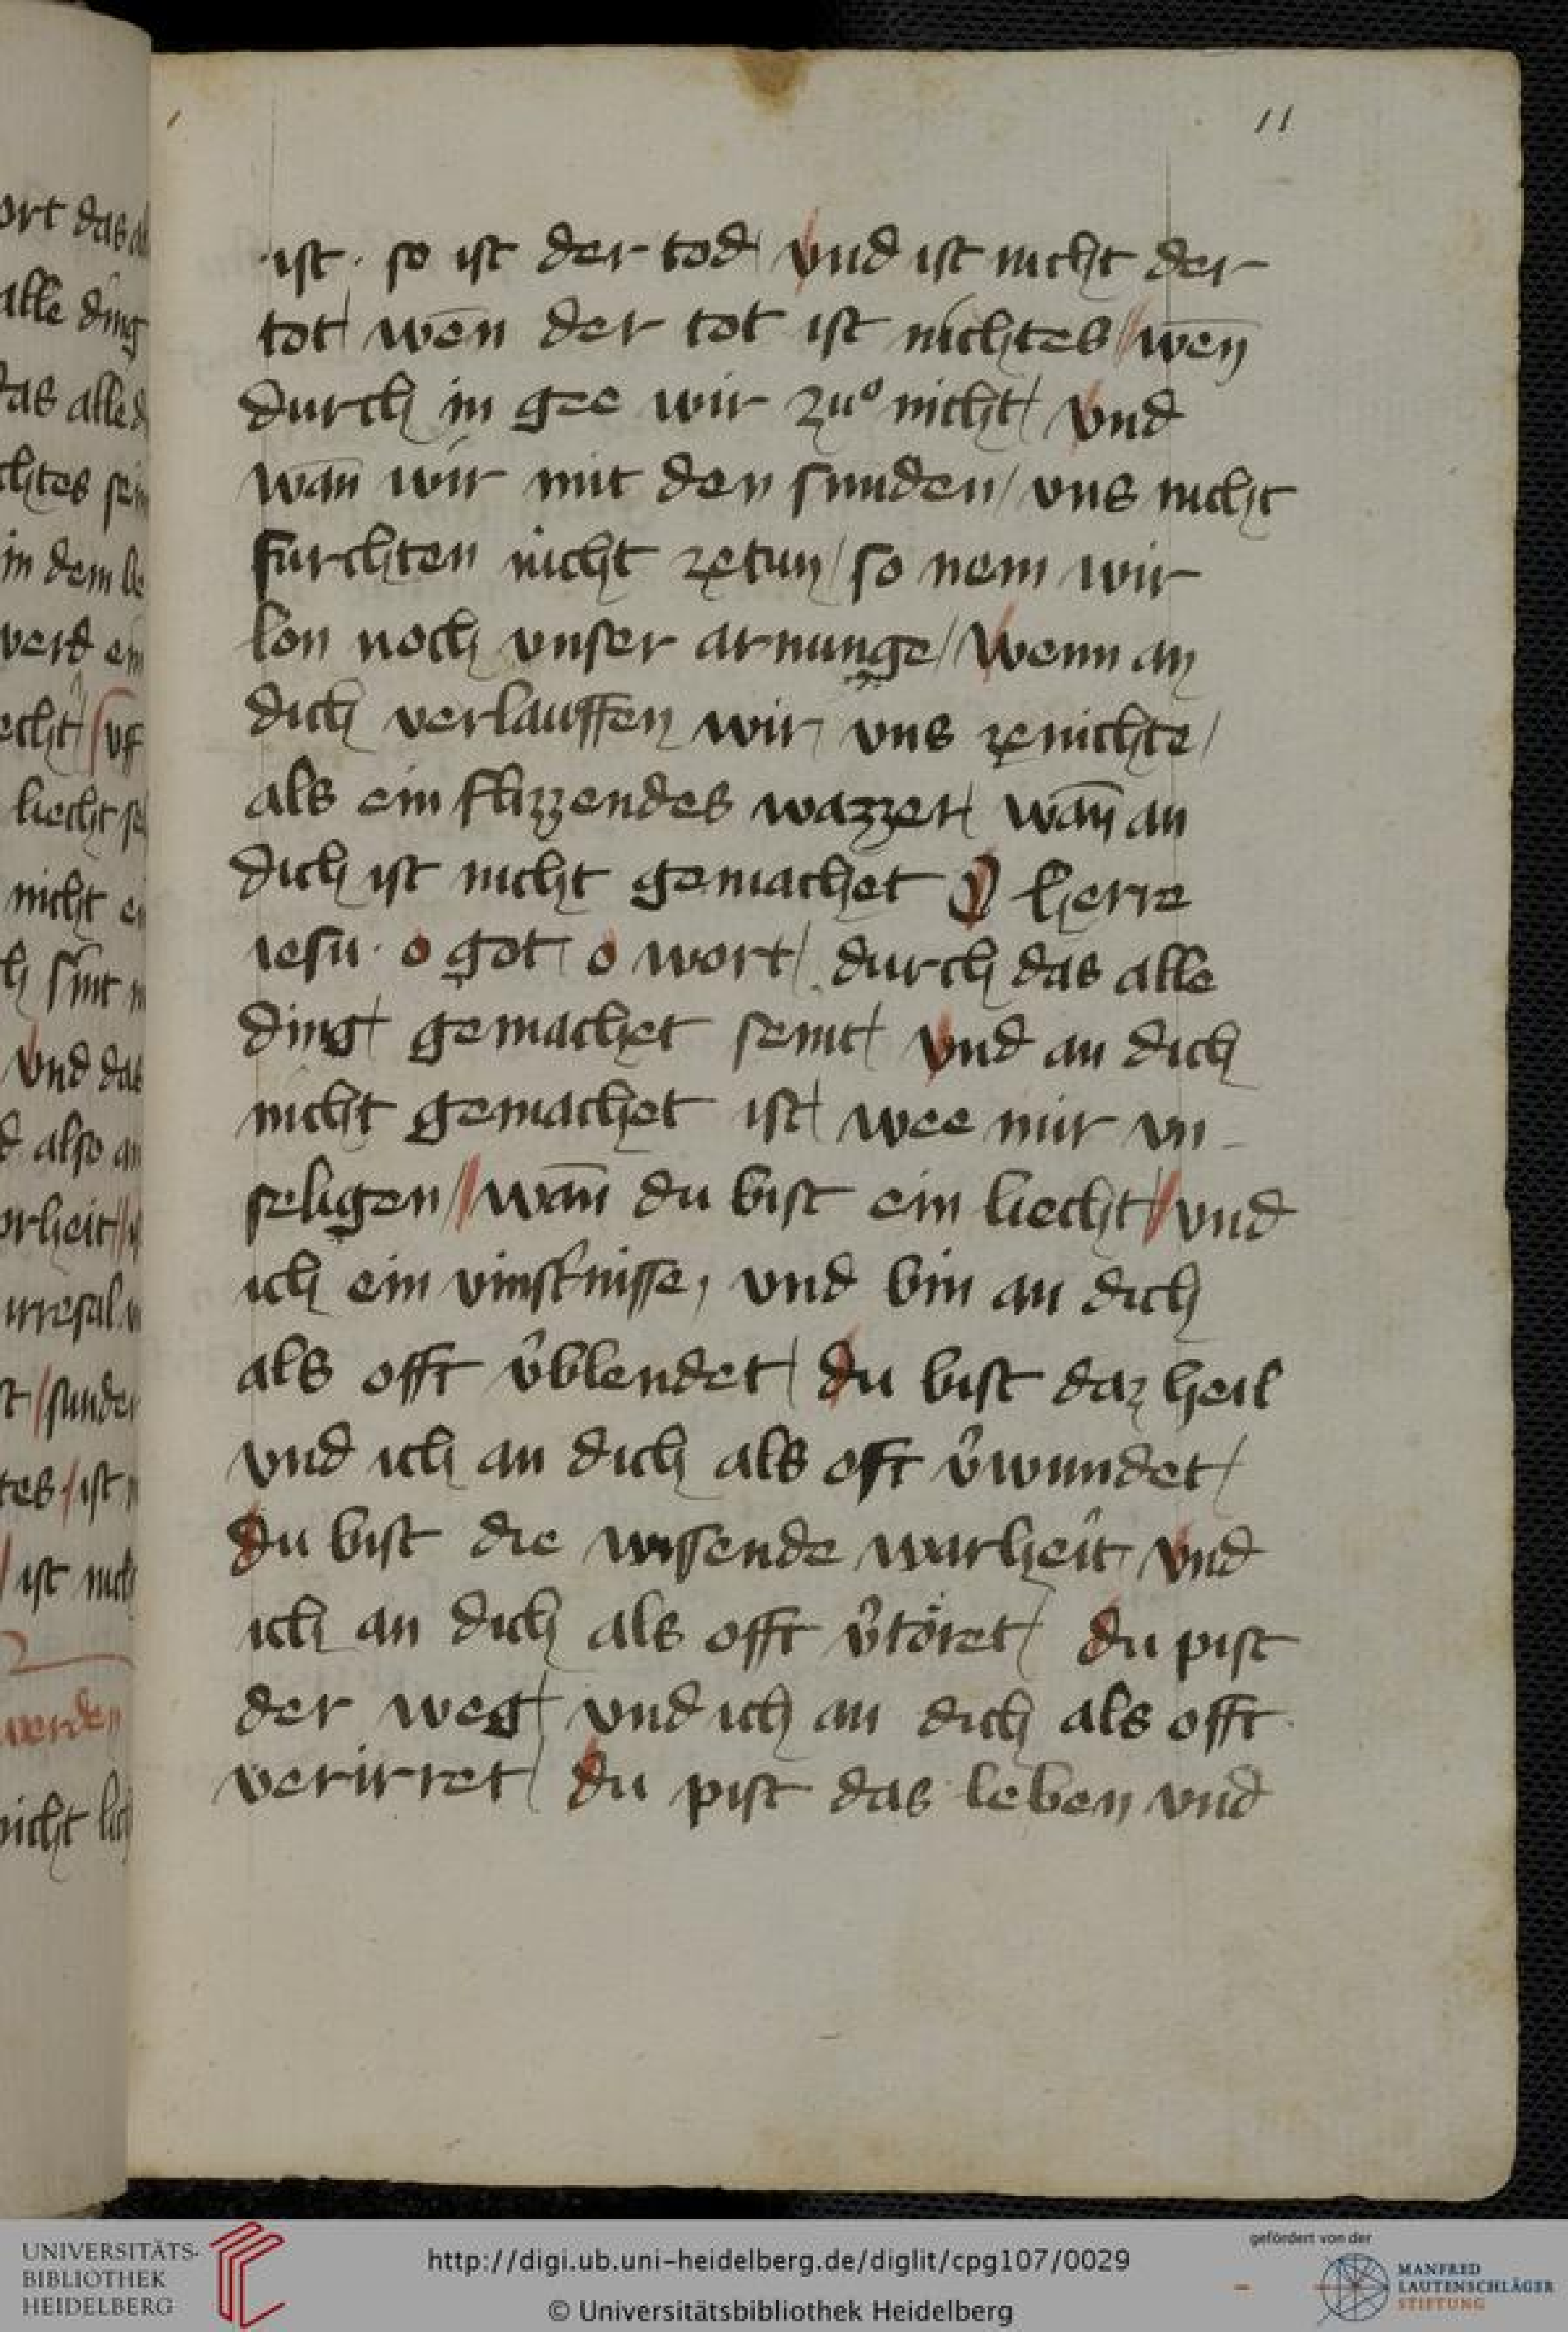 11
ist · so ist der tod / vnd ist nicht der
tot / wēn der tot ist nichtes // wēn
durch in gee wir zuͦ nicht / vnd
wān wir mit den sunden / vns nicht
furchten nicht zetun / so nem wir
lon noch vnser arnunge / Wenn an
dich verlauffen wir / vns zenichte /
als ein flizzendes wazzer / wān an
dich ist nicht gemachet O herre
iesu · o got / o wort / durch das alle
ding / gemachet seint / vnd an dich
nicht gemachet ist / wee mir vn-
seligen // wān du bist ein liecht // vnd
ich ein vinst'nisse / vnd bin an dich
als offt v̂blendet / du bist daz heil
vnd ich an dich als offt v̂wundet /
du bist die wissende warheit / vnd
ich an dich als offt v̂töret / du pist
der weg / vnd ich an dich als offt
verirret / du pist das leben vnd
ort das
alle ding
das alle
chtes
in dem
werd
liecht
nicht
sint
vnd das
also
irresal
sunder
ist
werden
nicht
UNIVERSITÄTS-
BIBLIOTHEK
HEIDELBERG
http://digi.ub.uni-heidelberg.de/diglit/cpg107/0029
© Universitätsbibliothek Heidelberg
gefördert von der
MANFRED
LAUTENSCHLÄGER
STIFTUNG